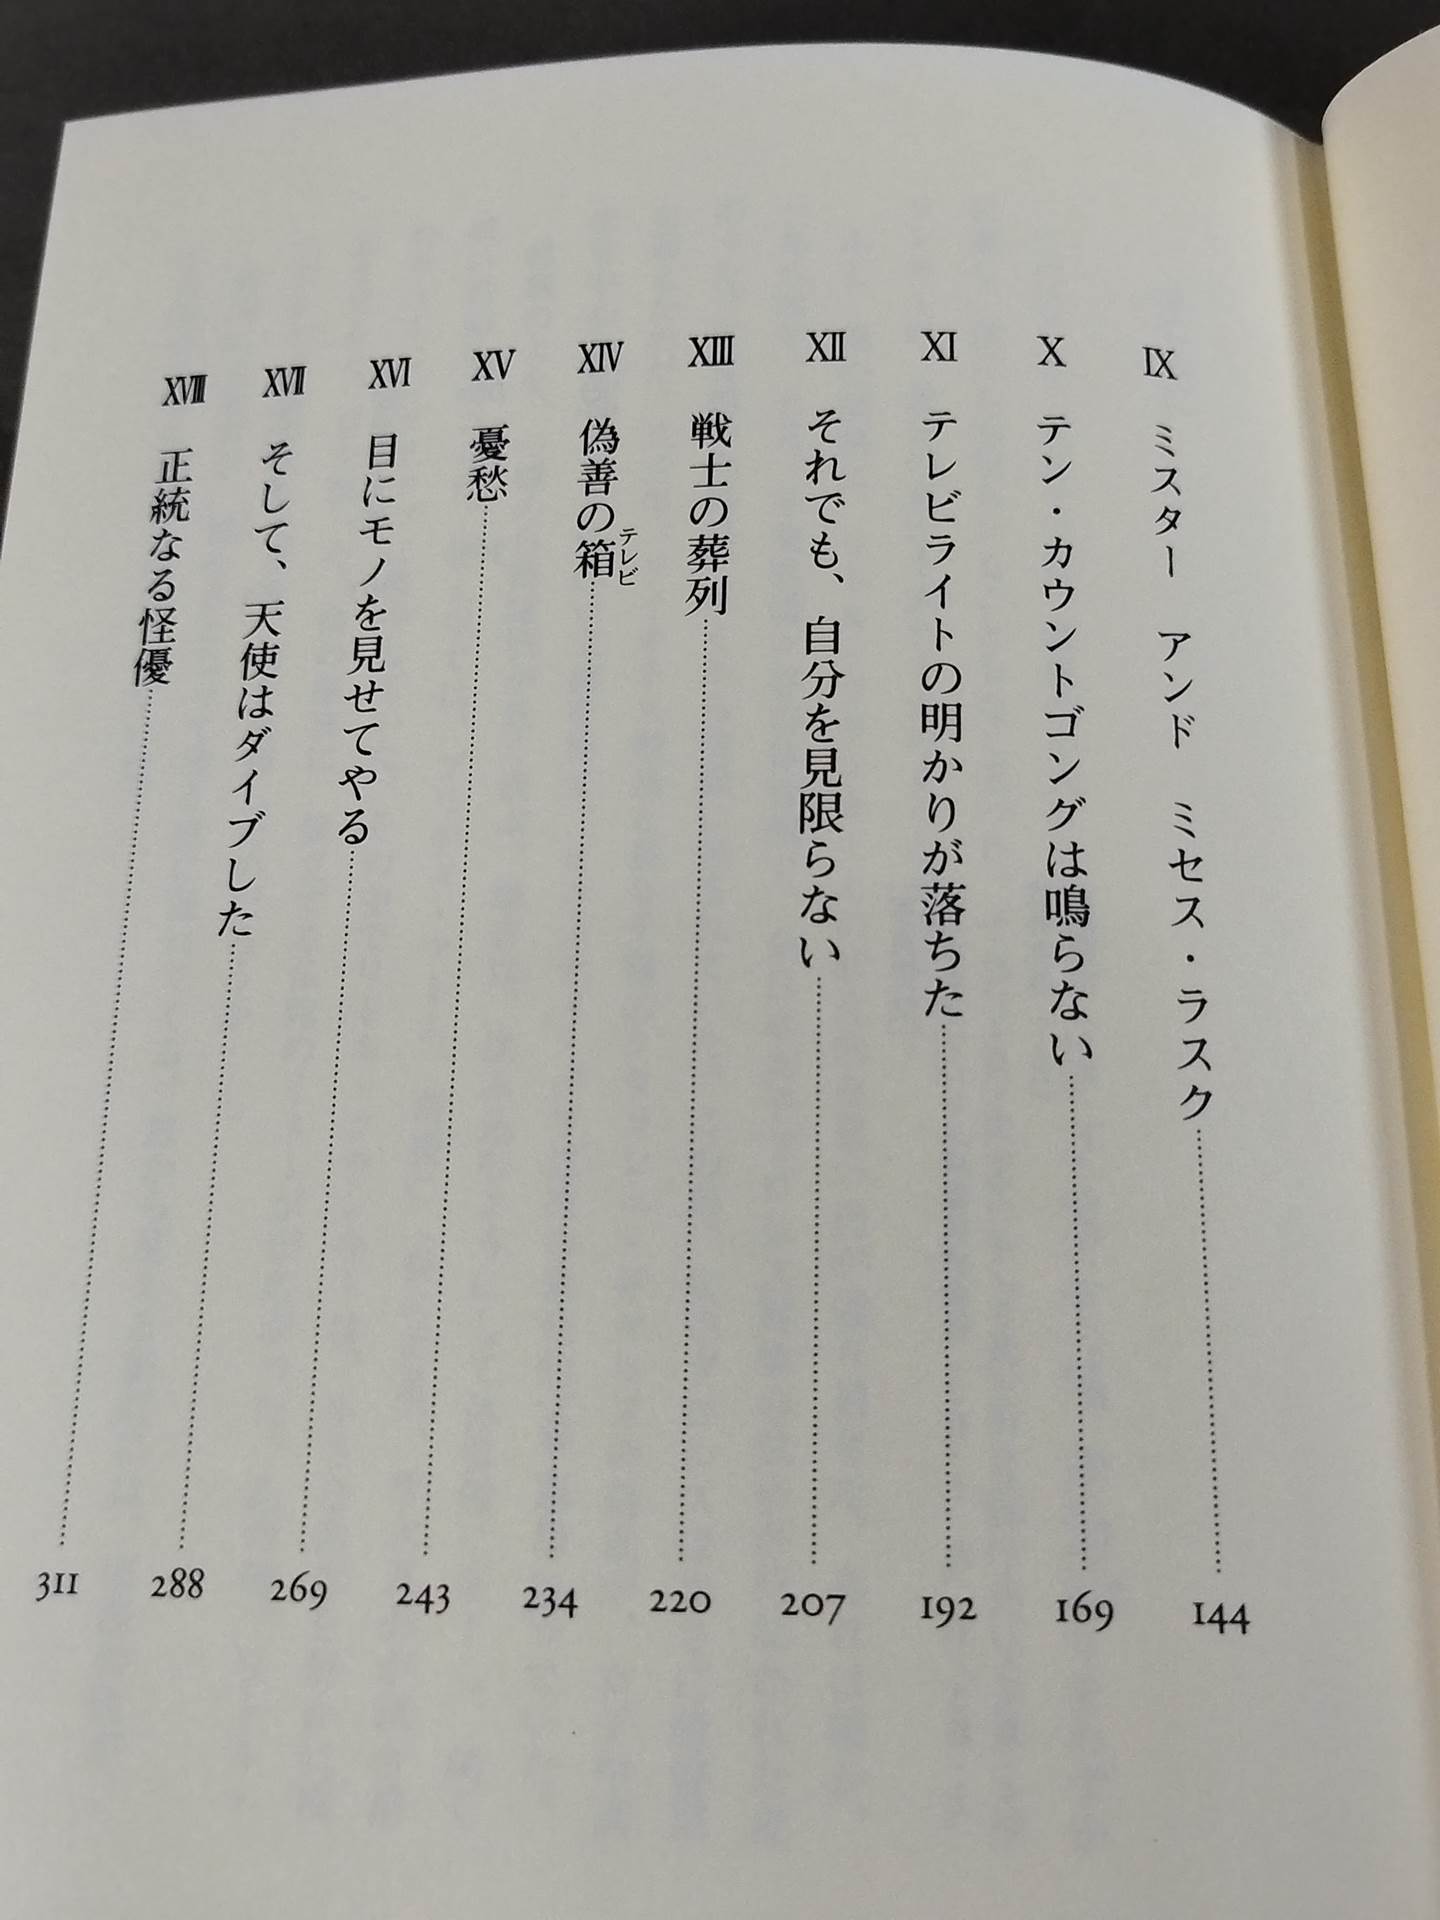 Ⅸ ミスター アンド ミセス・ラスク………144
Ⅹ テン・カウントゴングは鳴らない………169
Ⅺ テレビライトの明かりが落ちた………192
Ⅻ それでも、自分を見限らない………207
XIII 戦士の葬列………220
XIV 偽善の箱テレビ………234
XV 憂愁………243
XVI 目にモノを見せてやる………269
XVII そして、天使はダイブした………288
XVIII 正統なる怪優………311